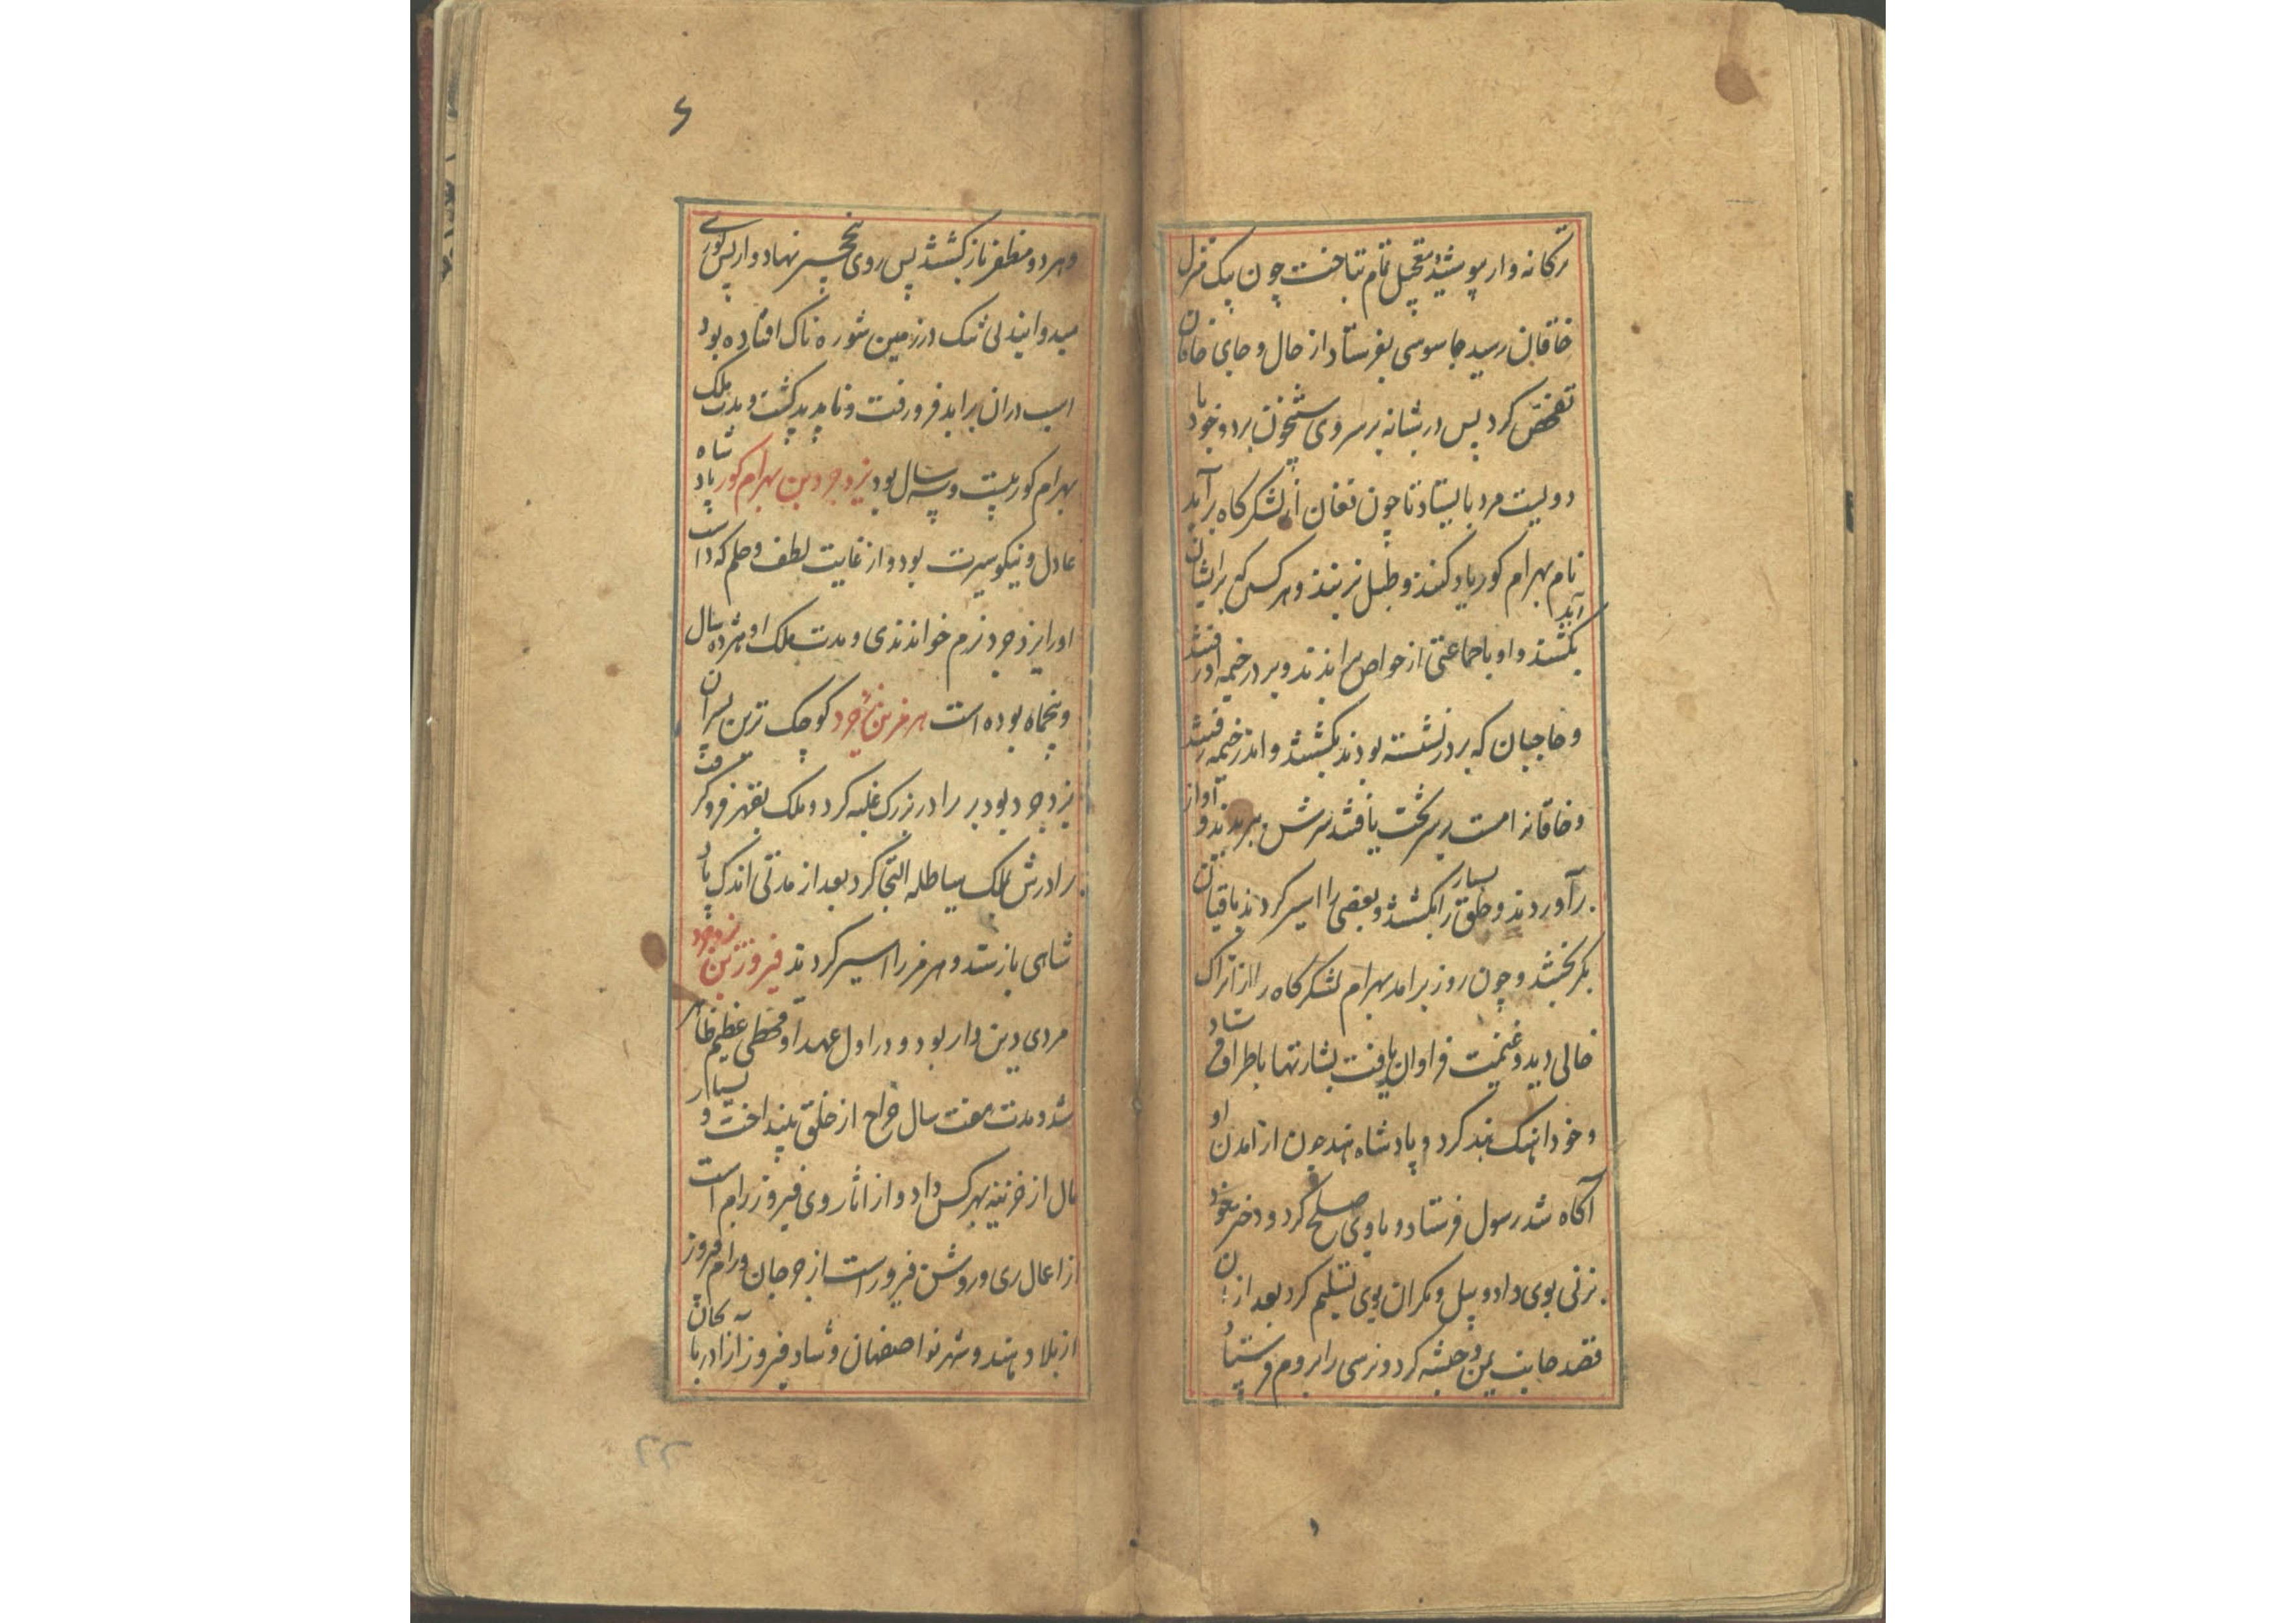 ترکانه وار پوشید و تعجیل تمام بتاخت چون بیک منزل
خاقان رسید جاسوسی بفرستاد از حال و جای خاقان
تفحص کرد پس در شبانه بر سر وی شبیخون برد و خود با
دویست مرد بایستاد تا چون فغان از لشکرگاه برآید
نام بهرام کور یاد کنند و طبل بزنند و هر کس که برایشان آید
بکشند و او با جماعتی از خواص براندند و بر در خیمه رفتند
و حاجبان که بر در نشسته بودند بکشتند و اندر خیمه رفتند
و خاقانرا مست بر سر تخت یافتند سرش ببریدند و آواز
برآوردند و خلق بسیار را بکشتند و بعضی را اسیر کردند باقیان
بگریختند و چون روز برآمد بهرام لشکرگاه را از اتراک
خالی دید و غنیمت فراوان یافت بشارتها باطراف فرستاد
و خود آهنک هند کرد و پادشاه هند چون از آمدن او
آکاه شد رسول فرستاد و با وی صلح کرد و دختر خود
بزنی بوی داد و بیل و مکران بوی تسلیم کرد بعد از آن
قصد جانب یمن و حبشه کرد و نرسی را بروم فرستاد
۶
و هر دو مظفر باز کشتند پس روی بنخجیر نهاد و از پس کوری
میدوانید لی تنک در زمین شوره ناک افتاده بود
اسب در ان براند فرو رفت و ناپدید کشت و مدت ملک
بهرام کور بیست و سه سال بود یزدجرد بن بهرام کور پادشاه
عادل و نیکو سیرت بود و از غایت لطف و حلم که داشت
او را یزدجرد نرم خواندندی و مدت ملک او هژده سال
و پنجماه بوده است هرمز بن یزدجرد کوچک ترین پسران
یزدجرد بود بر برادر بزرک غلبه کرد و ملک بقهر فرو گرفت
برادرش بملک هیاطله التجا کرد بعد از مدتی اندک با
شاهی باز ستد و هرمز را اسیر کردند فیروز بن یزدجرد
مردی دین دار بود و در اول عهد او قحطی عظیم ظاهر
شد و مدت هفت سال خراج از خلق بینداخت و بسیار
مال از خزینه بهر کس داد و از آثار وی فیروز رام است
از اعمال ری و روشن فیروز است از جرجان و رام فیروز
از بلاد هند و شهر نو اصفهان و شاد فیروز آذربایجان